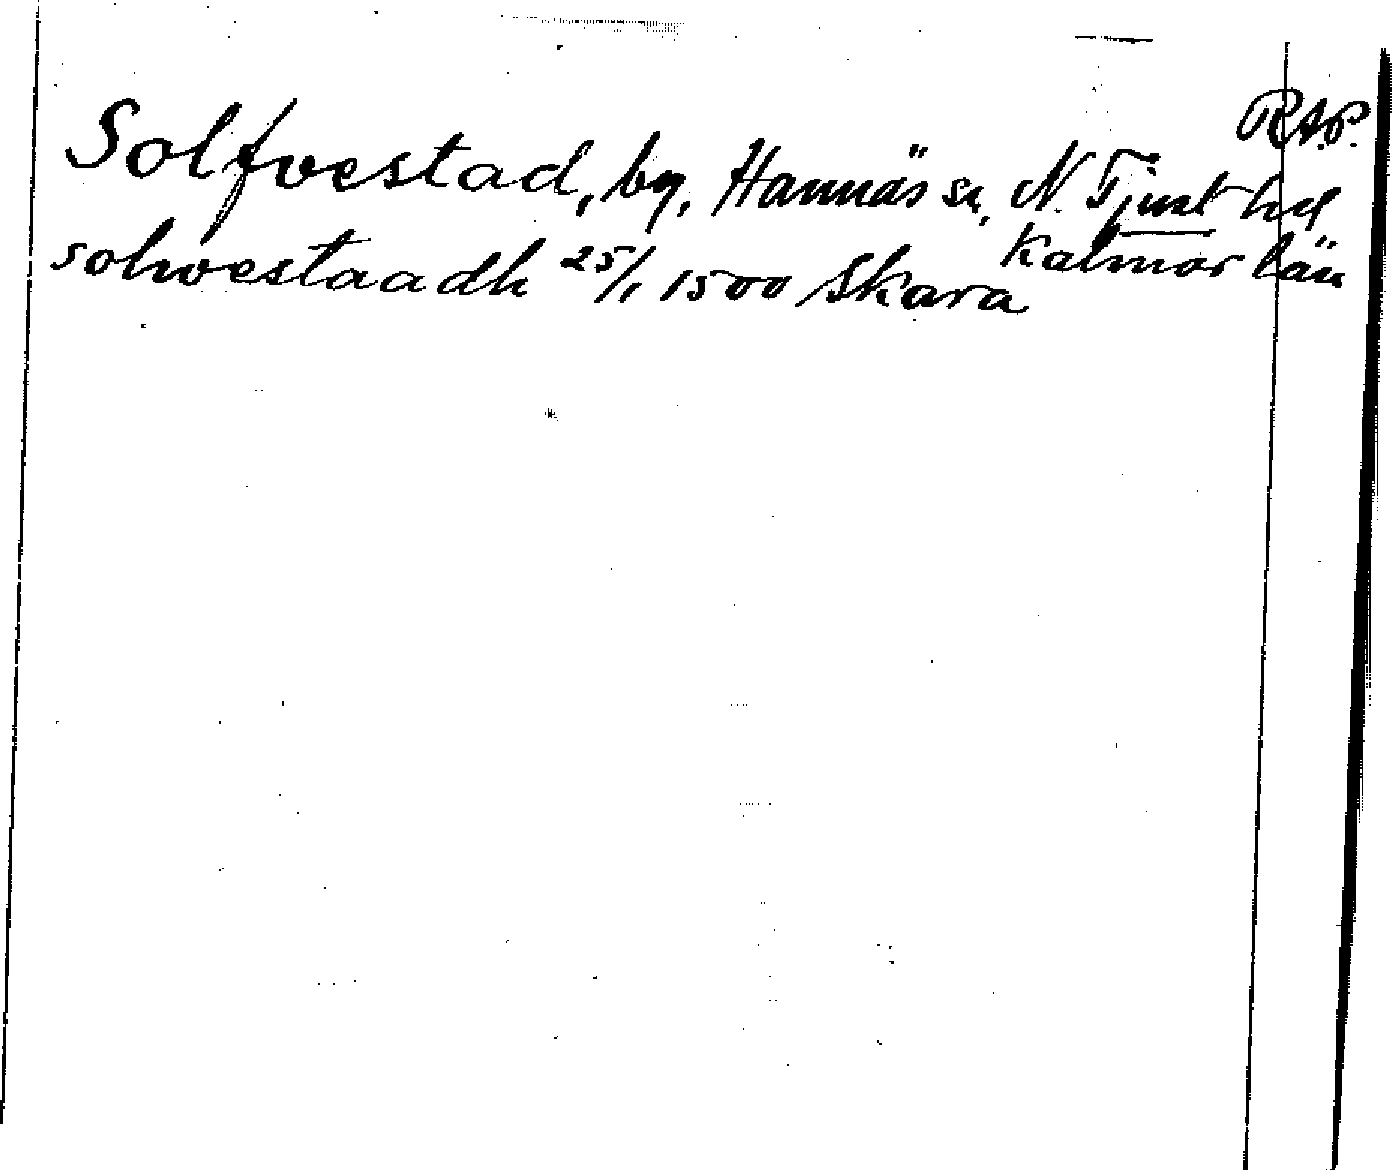 R.A.P.
Solfvestad, by, Hannäs sn, N. Tjust hd
Kalmar län
solwestaadh 25/1 1500 Skara